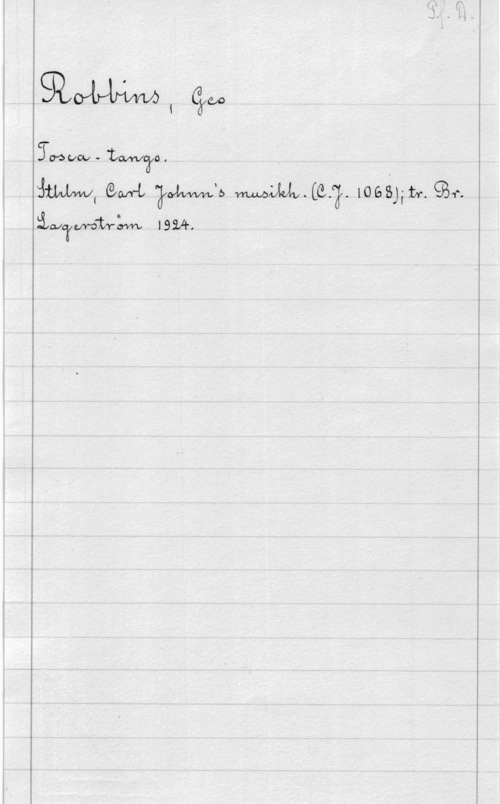 Pf. D.
Robbins, Geo
Tosca-tango.
Sthlm, Carl Johnn's musikh. (C.J. 1068); tr. Br.
Lagerström 1924.